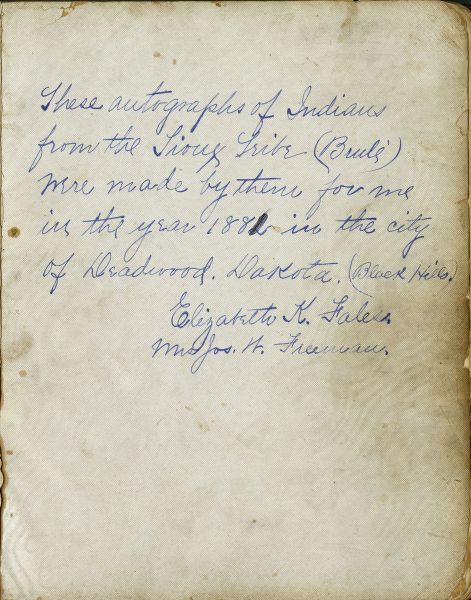 These autographs of Indians
from the Sioux Tribe (Brulé)
were made by them for me
in the year 188 in the city
of Deadwood. Dakota. (Black Hills.)
Elizabeth K. Fales.
Mrs Jos. W. Freeman.